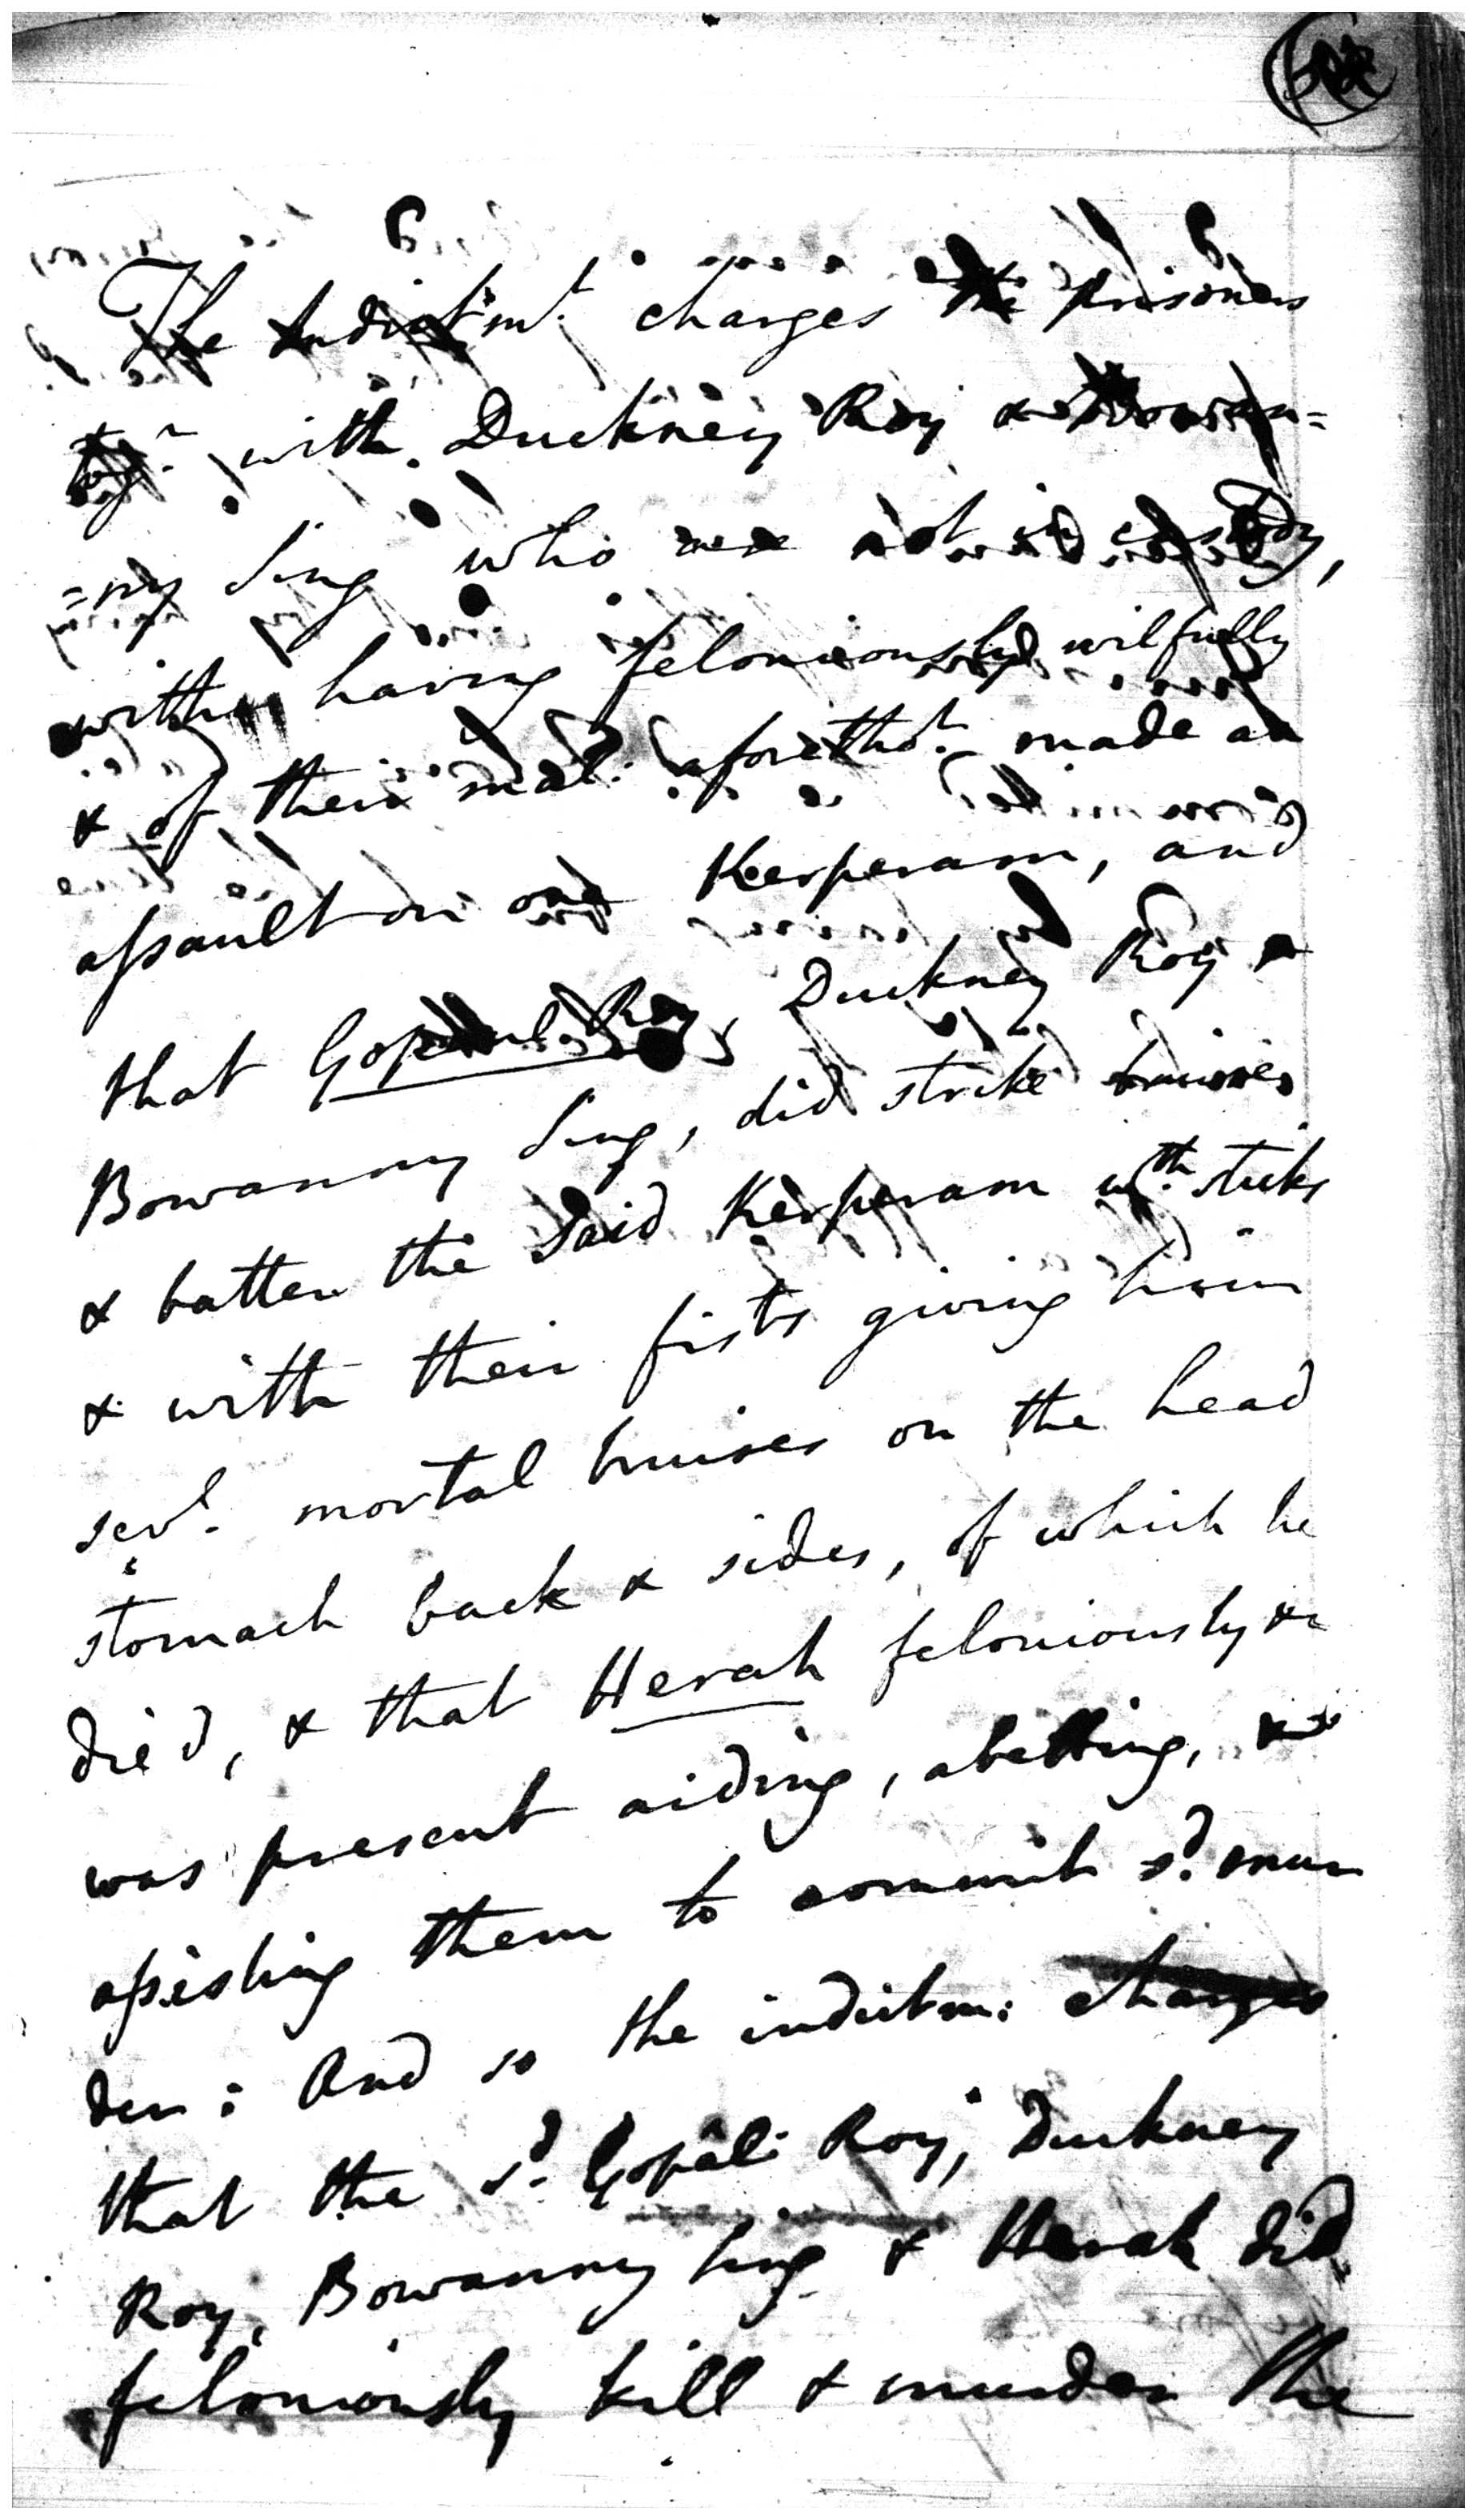 The Indictmt. charges the prisoners
togr. with Duckney Roy & Bowan=
=ny Sing who are not in custody,
with having feloniously wilfully
& of their mal: aforethot. made an
assault on one Kerperam, and
that Gopaul Roy, Duckney Roy &
Bowanny Sing, did strike bruise
& batter the said Kerperam wth. sticks
& with their fists giving him
sevl. mortal bruises on the head
stomach back & sides, of which he
died, & that Herah feloniously &c
was present aiding, abetting, &
assisting them to commit sd. mur
der: And so the indictm: charges
that the sd. Gopal: Roy, Duckney
Roy, Bowanny Sing & Herah did
feloniously kill & murder the